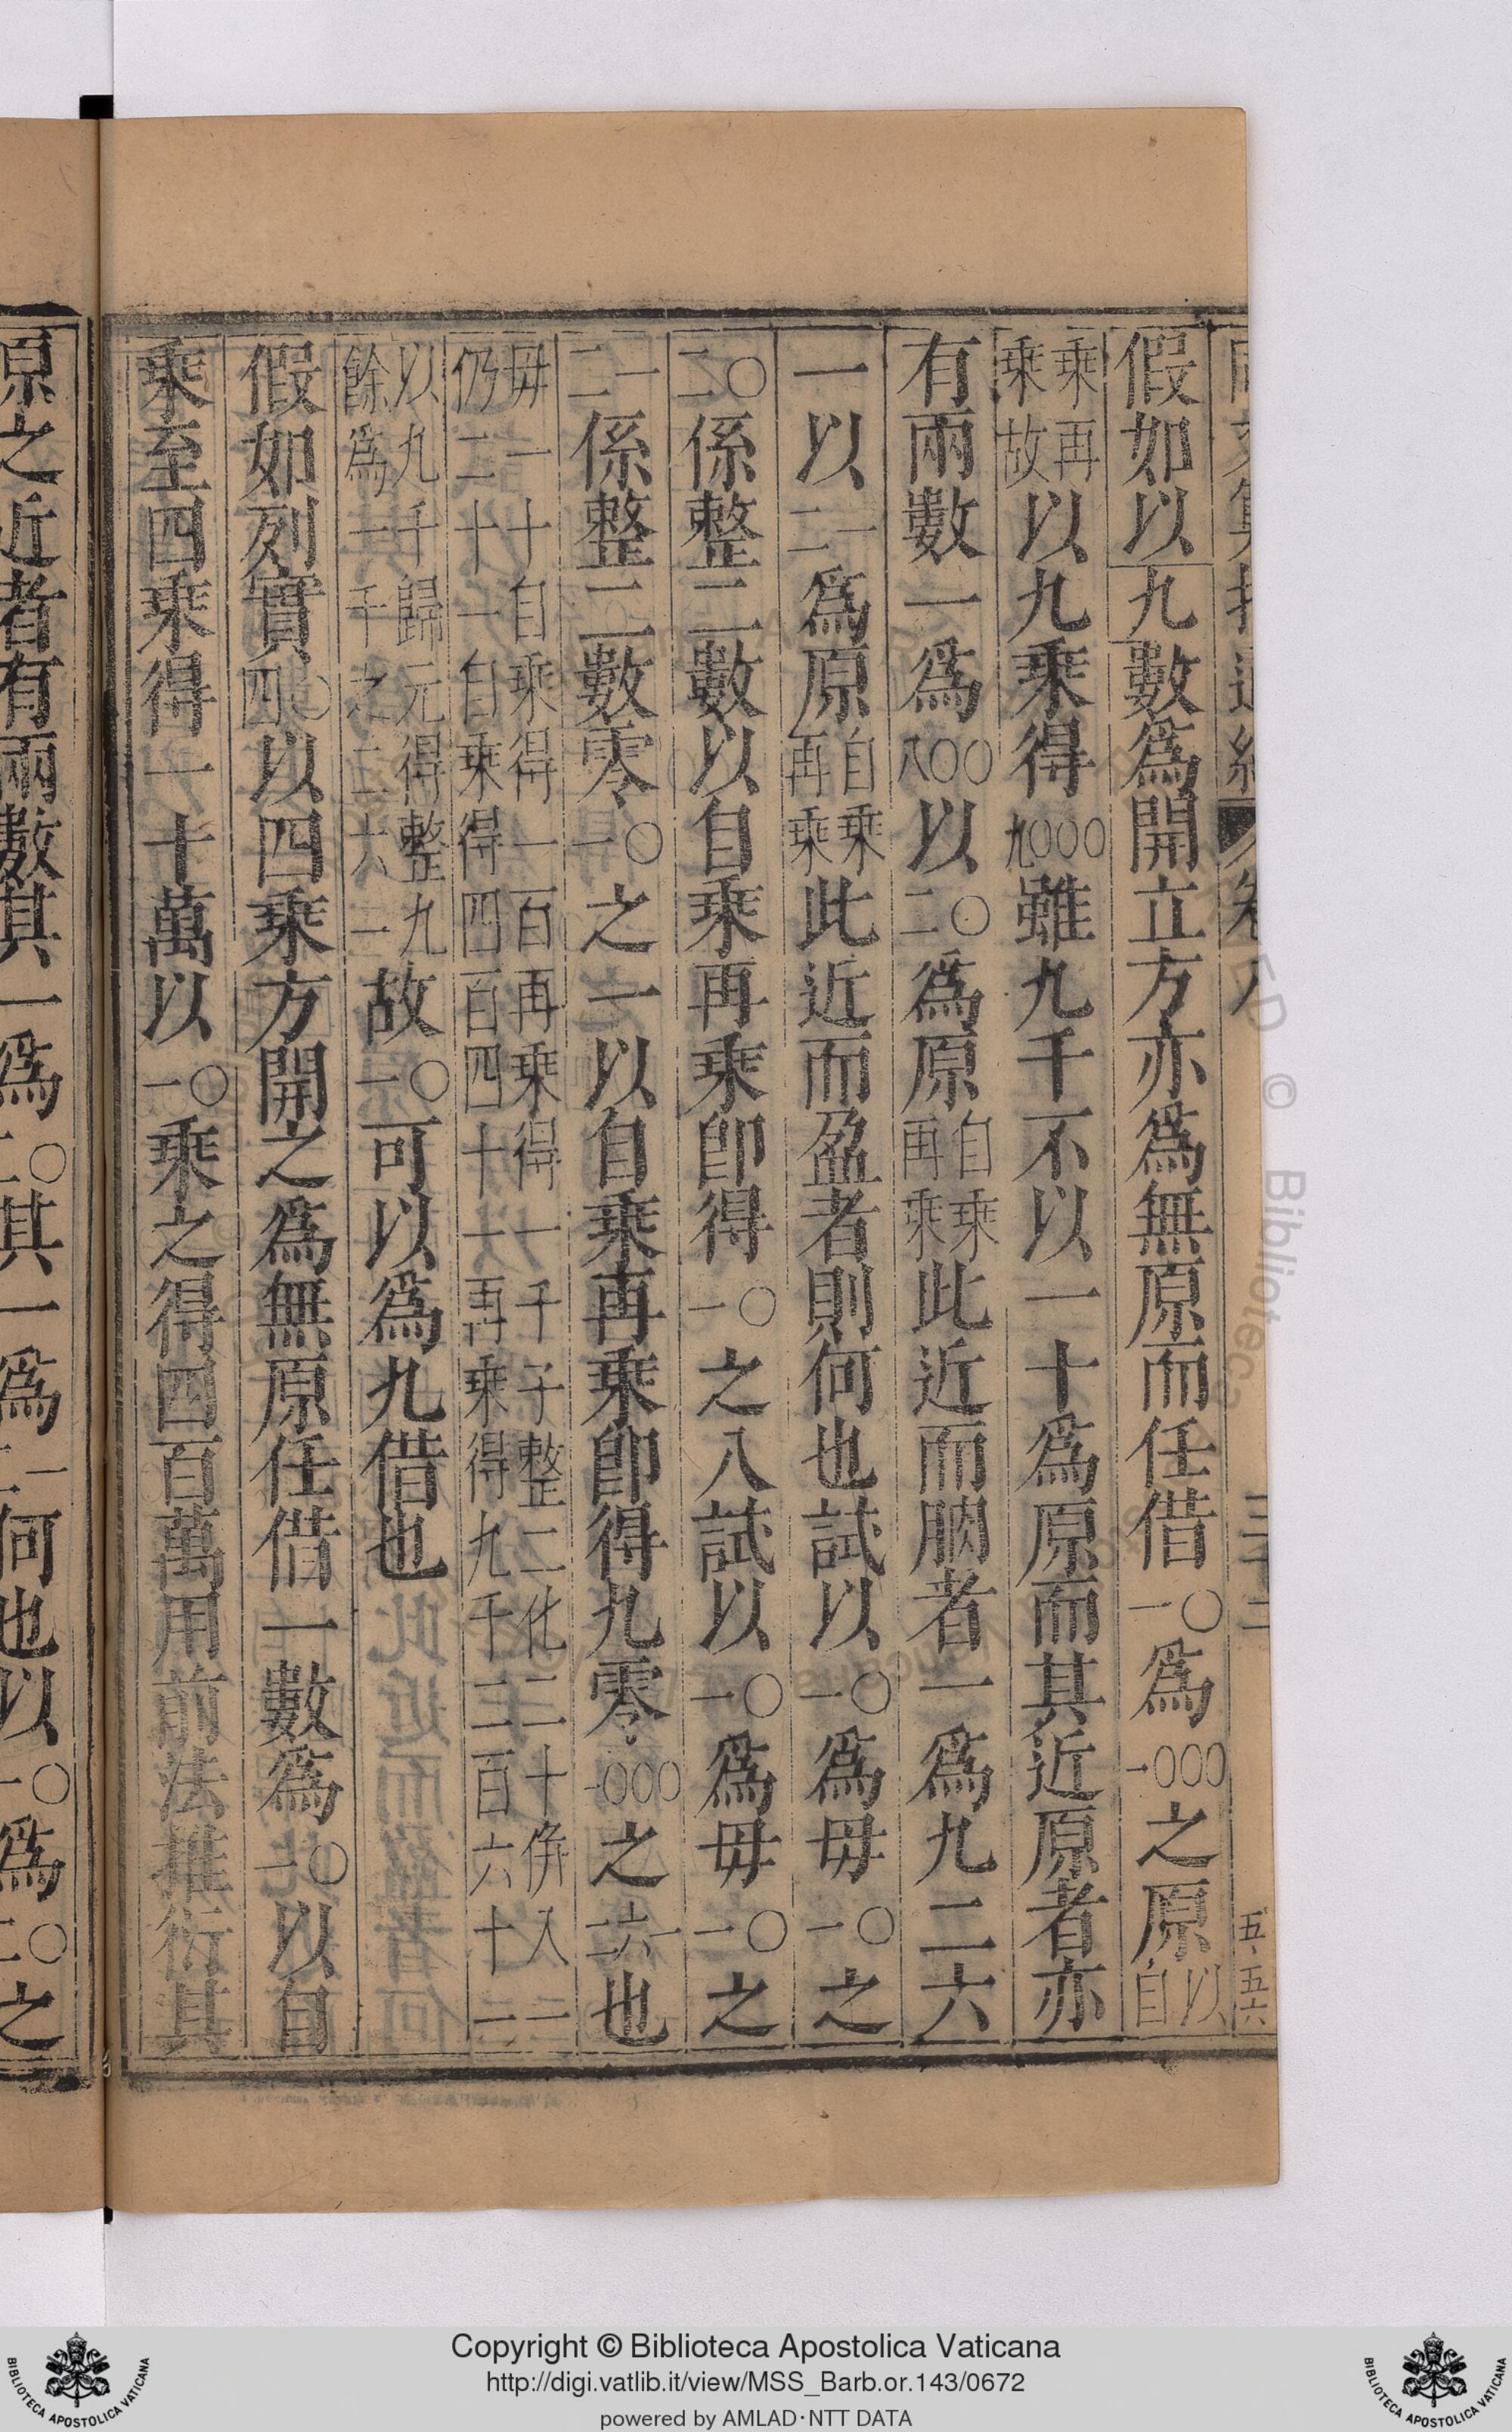 假如以九數爲開立方亦爲無原而任借一〇爲一〇〇〇之原以自
乘再乘故以九乘得九〇〇〇雖九千不以一十爲原而其近原者亦
有兩數一爲八〇〇以二〇爲原自乘再乘此近而朒者一爲九二六
一以二一爲原自乘再乘此近而盈者則何也試以一〇爲毋一〇之
二〇係整二數以自乘再乘卽得一〇之八試以一〇爲毋一〇之
二一係整二數零一〇之一以自乘再乘卽得九零一〇〇〇之二六一也
毋一十自乘得一百再乘得一千子整二化二十倂入一
仍二十一自乘得四百四十一再乘得九千二百六十一
以九千歸元得整九餘爲一千之二六一故一〇可以爲九借也
假如列實四〇以四乘方開之爲無原任借一數爲一〇以自
乘至四乘得一十萬以一〇乘之得四百萬用前法推衍其
原之近者有兩數其一爲二〇其一爲二一何也以一〇爲二〇之
三十二
五五六
Copyright © Biblioteca Apostolica Vaticana
http://digi.vatlib.it/view/MSS_Barb.or.143/0672
powered by AMLAD·NTT DATA
BIBLIOTECA APOSTOLICA VATICANA
BIBLIOTECA APOSTOLICA VATICANA